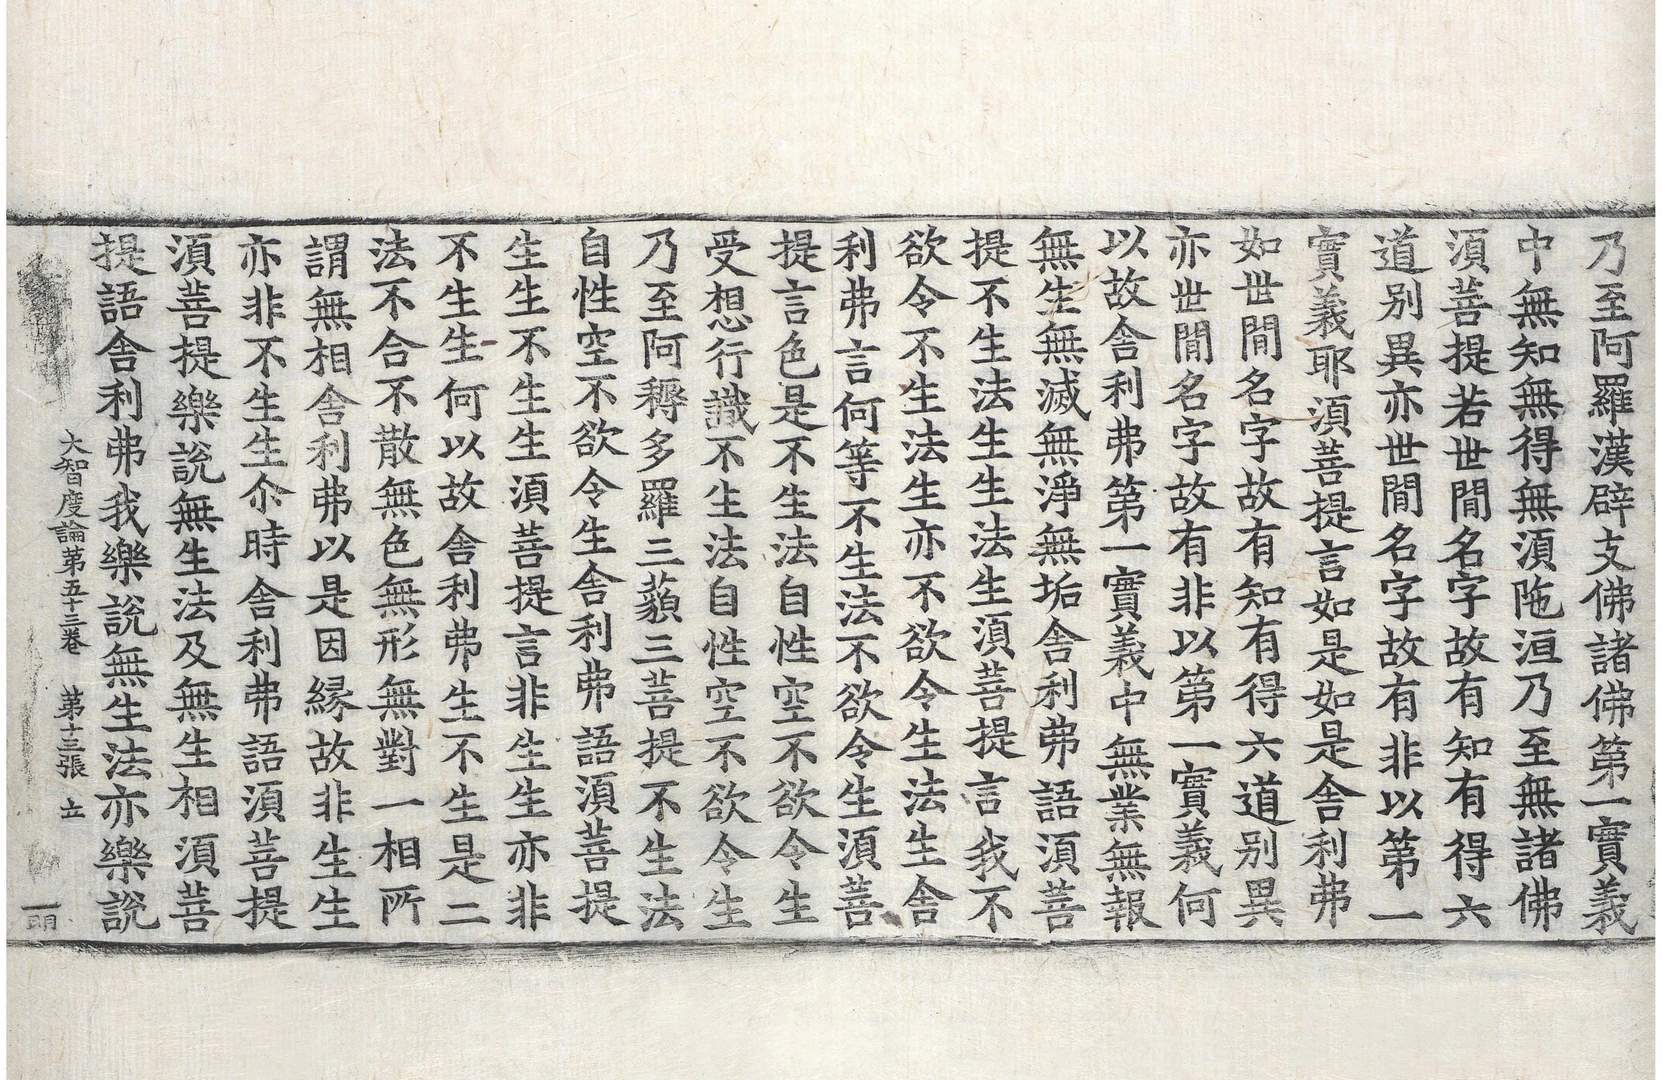 乃至阿羅漢辟支佛諸佛第一實義
中無知無得無須陁洹乃至無諸佛
須菩提若世間名字故有知有得六
道别異亦世間名字故有非以第一
實義耶須菩提言如是如是舍利弗
如世間名字故有知有得六道别異
亦世間名字故有非以第一實義何
以故舍利弗第一實義中無業無報
無生無滅無淨無垢舍利弗語須菩
提不生法生生法生須菩提言我不
欲令不生法生亦不欲令生法生舍
利弗言何等不生法不欲令生須菩
提言色是不生法自性空不欲令生
受想行識不生法自性空不欲令生
乃至阿耨多羅三藐三菩提不生法
自性空不欲令生舍利弗語須菩提
生生不生生須菩提言非生生亦非
不生生何以故舍利弗生不生是二
法不合不散無色無形無對一相所
謂無相舍利弗以是因縁故非生生
亦非不生生尒時舍利弗語須菩提
須菩提樂說無生法及無生相須菩
提語舍利弗我樂說無生法亦樂說
大智度論第五十三卷 第十三張 立